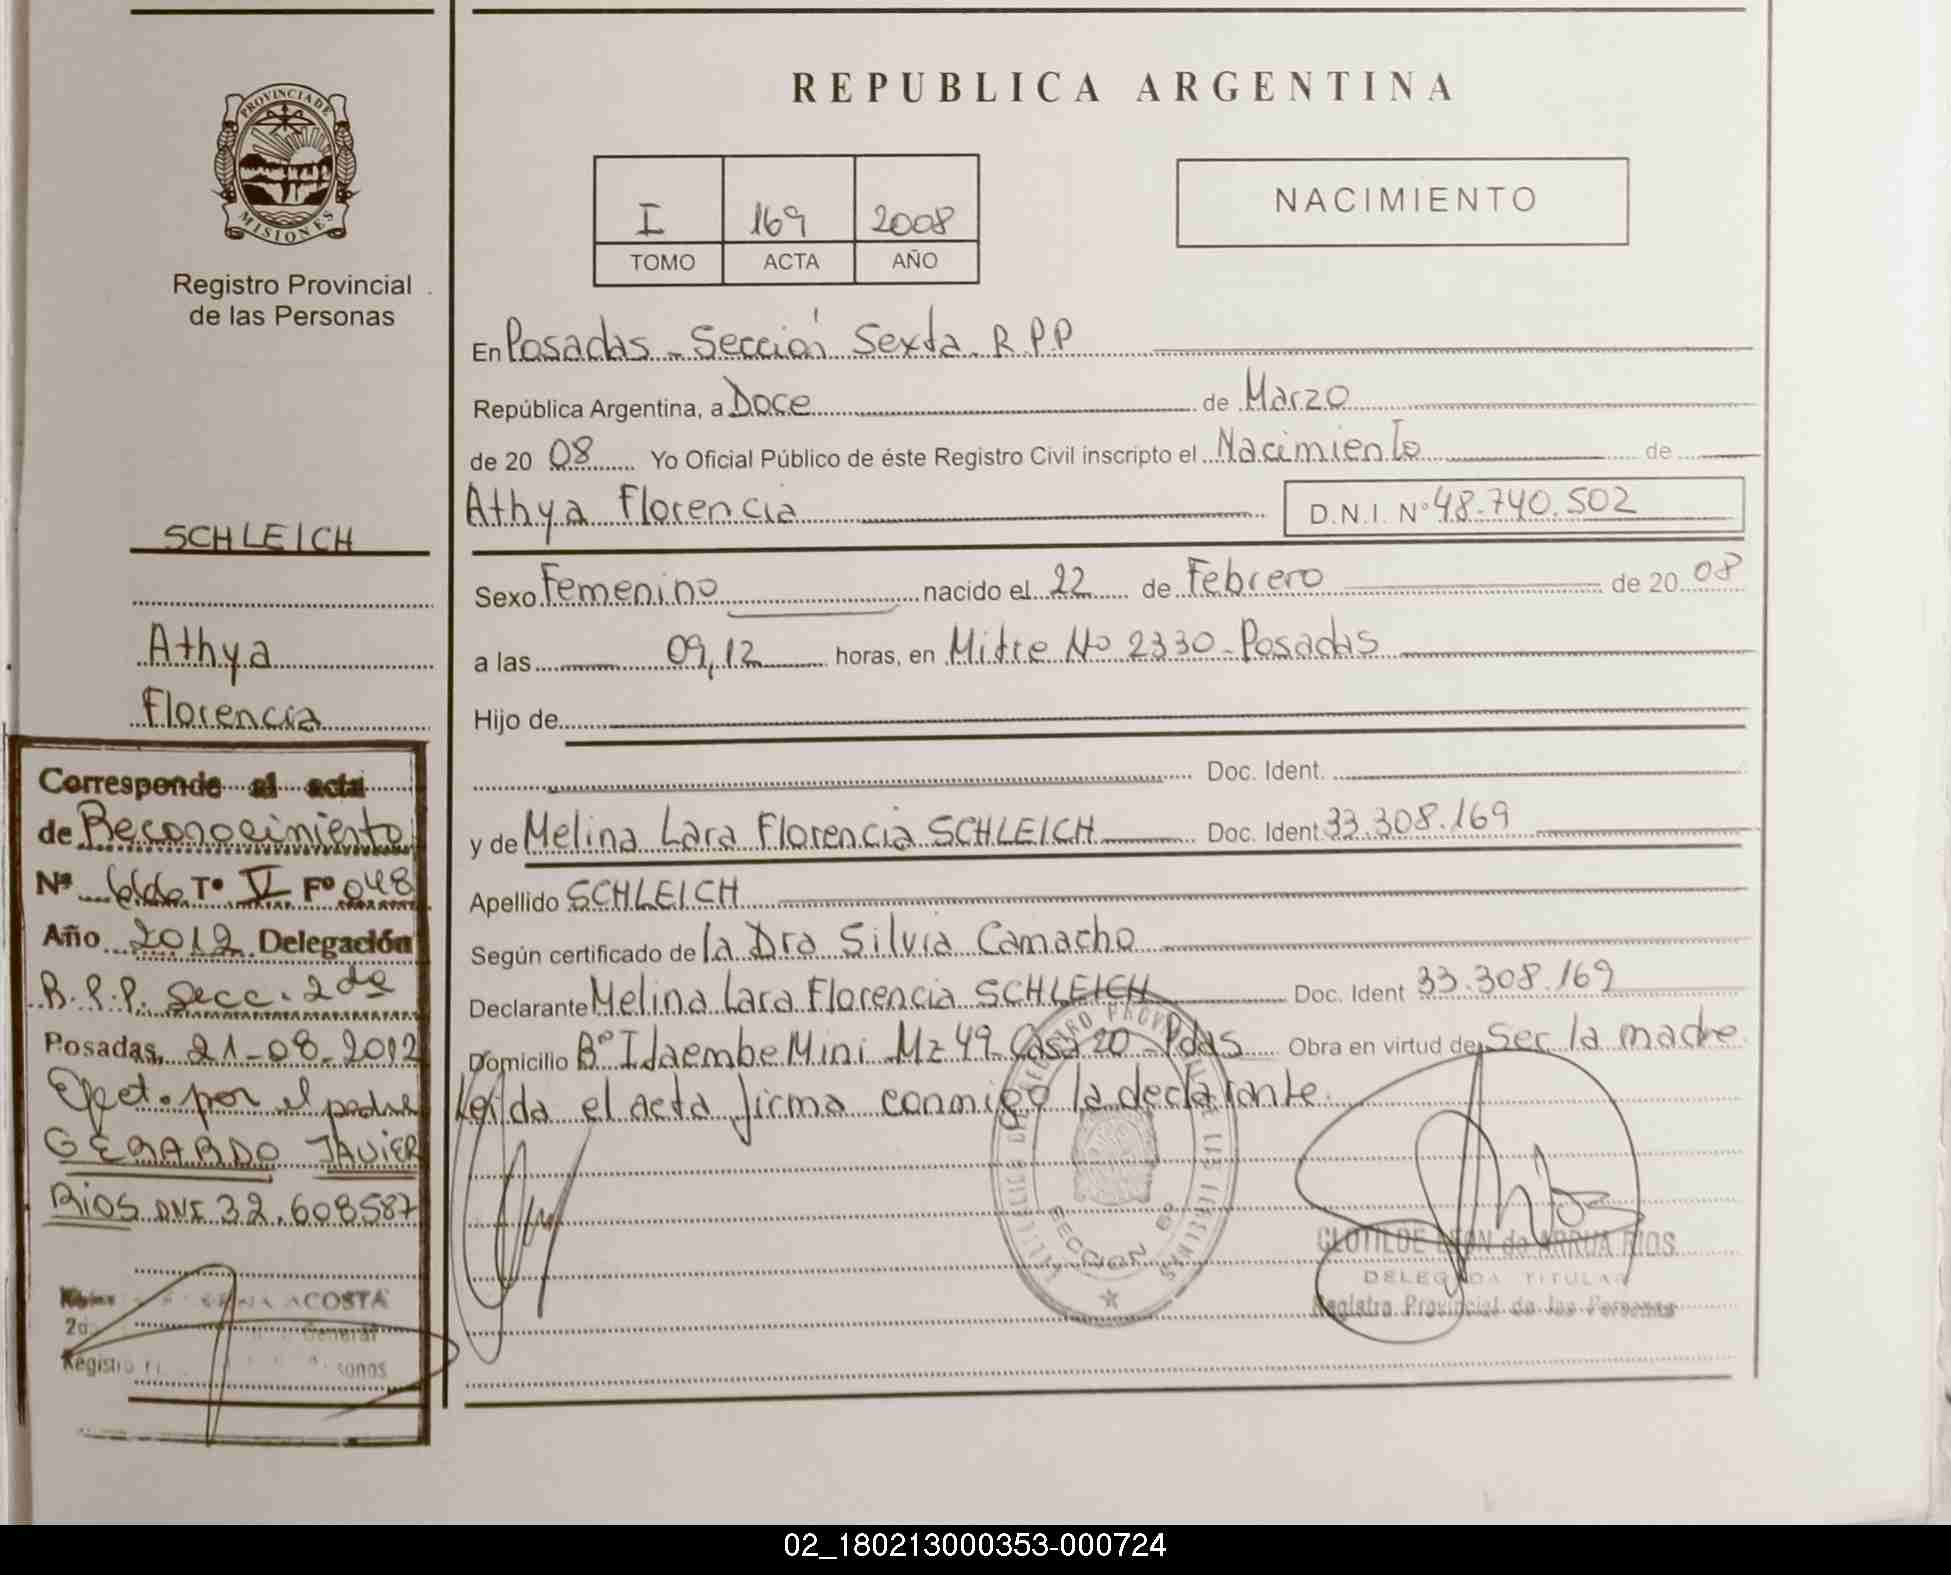 REPUBLICA ARGENTINA
PROVINCIA DE
MISIONES
Registro Provincial
de las Personas
I 169 2008
TOMO ACTA AÑO
NACIMIENTO
En Posadas - Sección Sexta. R.P.P
República Argentina, a Doce de Marzo
de 20 08 Yo Oficial Público de éste Registro Civil inscripto el Nacimiento de
Athya Florencia D.N.I. Nº 48.740.502
Sexo Femenino nacido el 22 de Febrero de 20 08
a las 09,12 horas, en Mitre Nº 2330 - Posadas
Hijo de
Doc. Ident.
y de Melina Lara Florencia SCHLEICH Doc. Ident. 33.308.169
Apellido SCHLEICH
Según certificado de la Dra Silvia Camacho
Declarante Melina Lara Florencia SCHLEICH Doc. Ident 33.308.169
Domicilio Bº Itaembe Mini Mz 49 Casa 20 - Pdas Obra en virtud de Ser la madre
Leída el acta firma conmigo la declarante.
SECCION 6º
CLOTILDE LEON de ARRUA RIOS
DELEGADA TITULAR
Registro Provincial de las Personas
SCHLEICH
Athya
Florencia
Corresponde al acta
de Reconocimiento
Nº Tº V Fº 048
Año 2012 Delegación
R.P.P. Secc. 2da
Posadas, 21-08-2012
Efect. por el padre
GERARDO JAVIER
Rios DNI 32.608587
ACOSTA
General
02_180213000353-000724